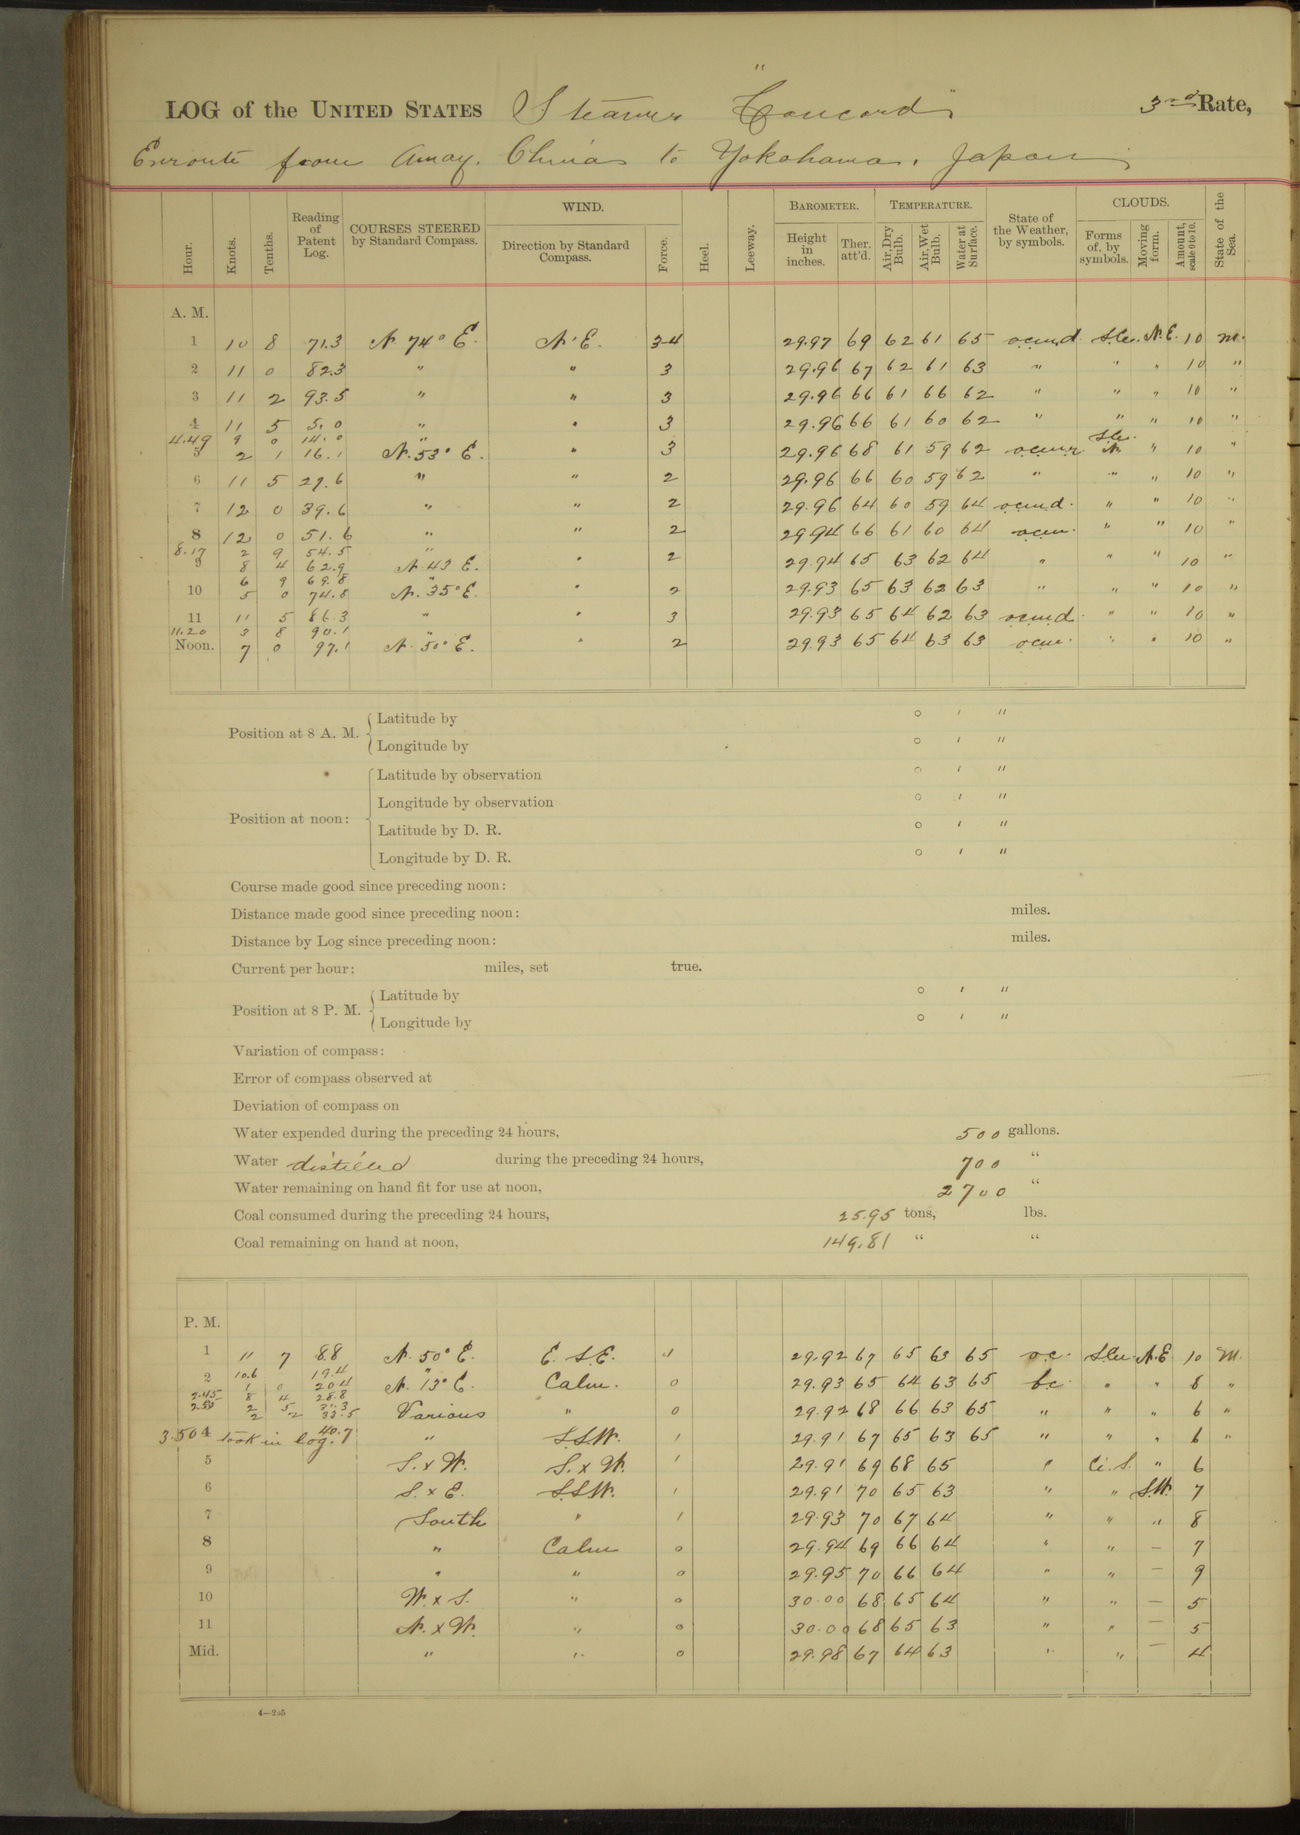 LOG of the UNITED STATES Steamer "Concord" 3rd Rate,
Enroute from Amoy, China to Yokohama, Japan
Hour. Knots. Tenths. Reading of Patent Log. COURSES STEERED by Standard Compass. WIND. Direction by Standard Compass. Force. Heel. Leeway. BAROMETER. Height in inches. Ther. att'd. TEMPERATURE. Air, Dry Bulb. Air, Wet Bulb. Water at Surface. State of the Weather, by symbols. CLOUDS. Forms of, by symbols. Moving form. Amount, scale 0 to 10. State of the Sea.
A. M.
1 10 8 71.3 N. 74° E. N.E. 3-4 29.97 69 62 61 65 ocmd. Stu. N.E. 10 M.
2 11 0 82.3 " " 3 29.96 67 62 61 63 " " " 10 "
3 11 2 93.5 " " 3 29.96 66 61 66 62 " " " 10 "
4 11 5 5.0 " " 3 29.96 66 61 60 62 " " " 10 "
4.49 9 0 14.0 "
5 2 1 16.1 N. 53° E. " 3 29.96 68 61 59 62 ocmr Stu. N. " 10 "
6 11 5 27.6 " " 2 29.96 66 60 59 62 " " " 10 "
7 12 0 39.6 " " 2 29.96 64 60 59 64 ocmd. " " 10 "
8 12 0 51.6 " " 2 29.94 66 61 60 64 ocm. " " 10 "
8.17 2 9 54.5 "
9 8 4 62.9 N. 43 E. " 2 29.94 65 63 62 64 " " " 10 "
6 9 69.8 "
10 5 0 74.8 N. 35° E. " 2 29.93 65 63 62 63 " " " 10 "
11 11 5 86.3 " " 3 29.93 65 64 62 63 ocmd. " " 10 "
11.20 3 8 90.1 "
Noon. 7 0 97.1 N. 50° E. " 2 29.93 65 64 63 63 ocm. " " 10 "
Position at 8 A. M. Latitude by ° ′ ″
Longitude by ° ′ ″
Position at noon: Latitude by observation ° ′ ″
Longitude by observation ° ′ ″
Latitude by D. R. ° ′ ″
Longitude by D. R. ° ′ ″
Course made good since preceding noon:
Distance made good since preceding noon: miles.
Distance by Log since preceding noon: miles.
Current per hour: miles, set true.
Position at 8 P. M. Latitude by ° ′ ″
Longitude by ° ′ ″
Variation of compass:
Error of compass observed at
Deviation of compass on
Water expended during the preceding 24 hours, 500 gallons.
Water distilled during the preceding 24 hours, 700 "
Water remaining on hand fit for use at noon, 2700 "
Coal consumed during the preceding 24 hours, 25.95 tons, lbs.
Coal remaining on hand at noon, 149.81 " "
P. M.
1 11 7 8.8 N. 50° E. E. S.E. 1 29.92 67 65 63 65 oc. Stu. N.E. 10 M.
10.6 19.4 "
2 1 0 20.4 N. 13° E. Calm. 0 29.93 65 64 63 65 bc. " " 8 "
2.45 8 4 28.8
2 5 31.3
2 2 33.5 Various " 0 29.92 68 66 63 65 " " " 6 "
3.50 4 took in log. 40.7 " S.S.W. 1 29.91 67 65 63 65 " " " 6 "
5 S. x W. S. x W. 1 29.91 69 68 65 " Ci. S. " 6
6 S. x E. S.S.W. 1 29.91 70 65 63 " " S.W. 7
7 South " 1 29.93 70 67 64 " " " 8
8 " Calm 0 29.94 69 66 64 " " — 7
9 " " 0 29.95 70 66 64 " " — 9
10 W. x S. " 0 30.00 68 65 64 " " — 5
11 N. x W. " 0 30.00 68 65 63 " " — 5
Mid. " " 0 29.98 67 64 63 " " — 4
4—205